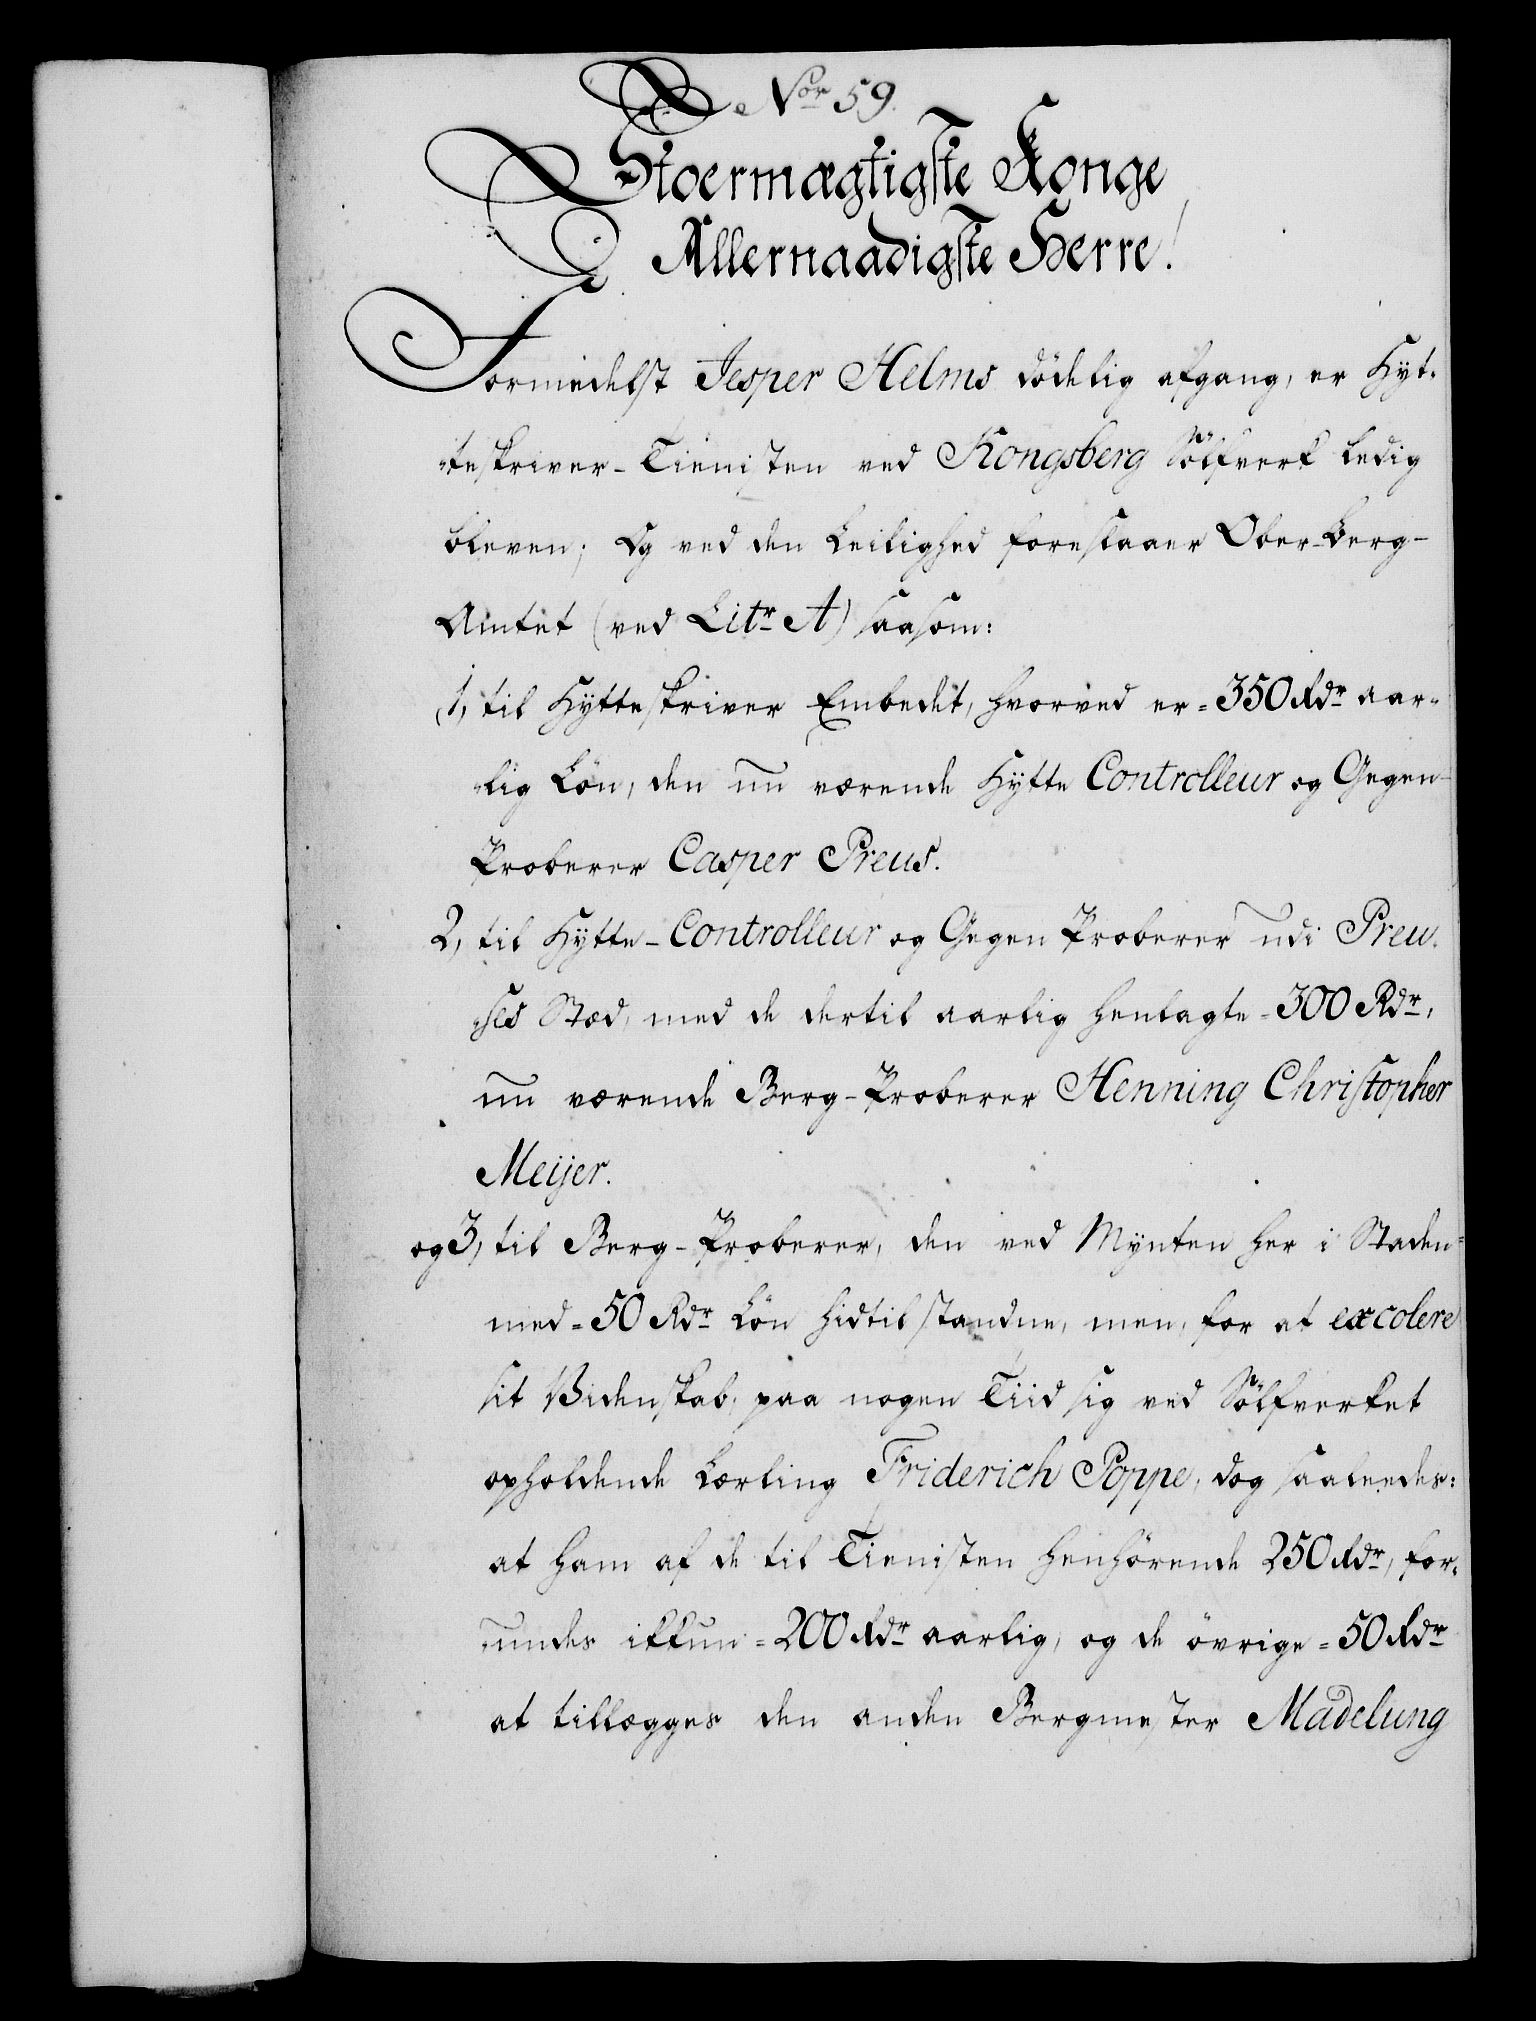 Nor 59.
Stoermægtigste Konge
Allernaadigste Herre!
Formedelst Jesper Helms dödelig afgang, er Hyt-
teskriver-Tienisten ved Kongsberg Sölfverk ledig
bleven; Og ved den Leilighed foreslaaer Ober-Berg-
Amtet (ved Litr A) saasom:
1, til Hytteskriver Embedet, hvorved er = 350 Rdr aar-
lig Lön, den nu værende Hytte Controlleur og Gegen-
Proberer Casper Preus.
2, til Hytte-Controlleur og Gegen Proberer udi Preu-
ses Stæd, med de dertil aarlig henlagte = 300 Rdr,
nu værende Berg-Proberer Henning Christopher
Meijer.
og 3, til Berg-Proberer, den ved Mynten her i Staden
med = 50 Rdr Lön hidtil standne, men, for at excolere
sit Videnskab, paa nogen Tiid sig ved Sölfverket
opholdende Lærling Friderich Poppe, dog saaledes:
at ham af de til Tienisten henhörende 250 Rdr, for-
undes ikkun = 200 Rdr aarlig, og de övrige = 50 Rdr
at tillægges den anden Bergmester Madelung